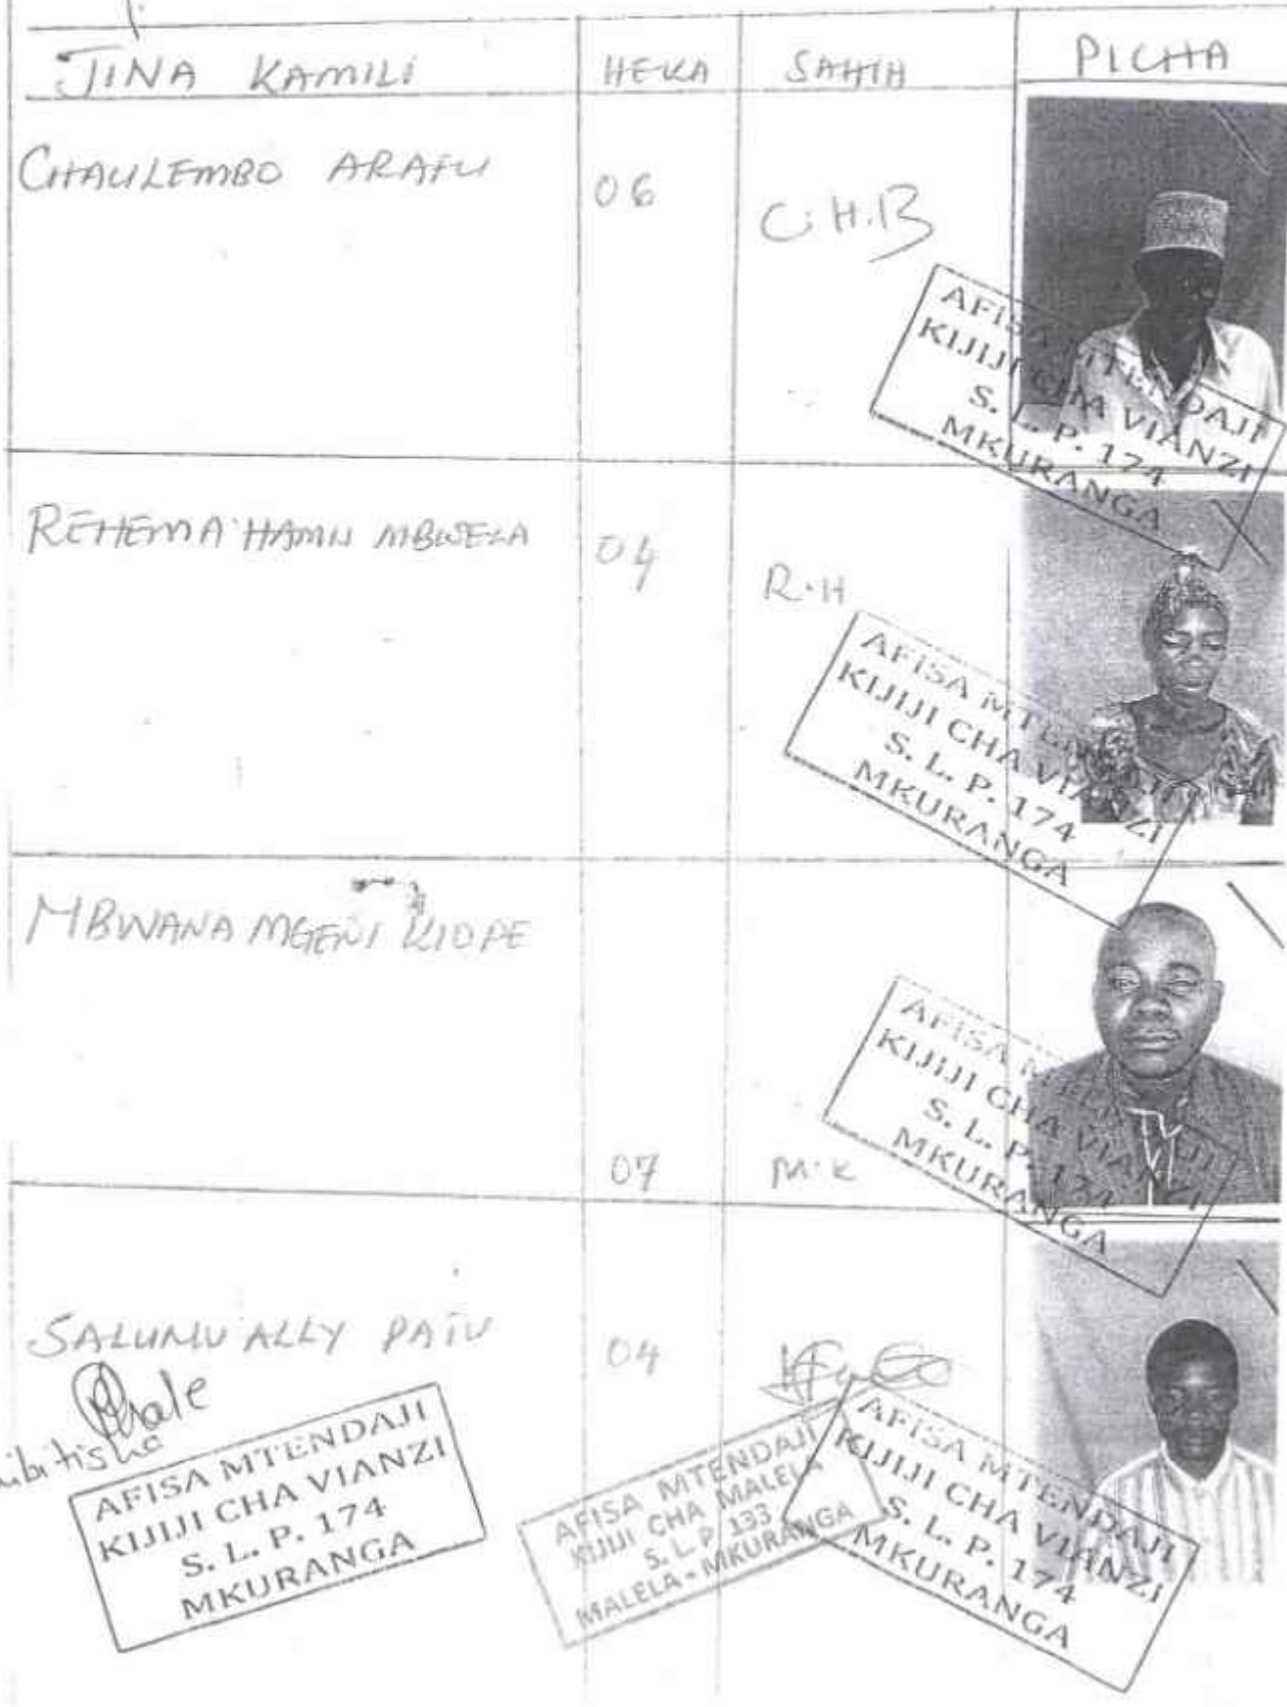 JINA KAMILI HEKA SAHIH PICHA
CHAULEMBO ARAFU 06 C.H.B
AFISA MTENDAJI
KIJIJI CHA VIANZI
S. L. P. 174
MKURANGA
REHEMA HAMISI MBWELA 04 R.H
AFISA MTENDAJI
KIJIJI CHA VIANZI
S. L. P. 174
MKURANGA
MBWANA MGENI KIOPE
07 M.K
AFISA MTENDAJI
KIJIJI CHA VIANZI
S. L. P. 174
MKURANGA
SALUMU ALLY PATU 04
AFISA MTENDAJI
KIJIJI CHA VIANZI
S. L. P. 174
MKURANGA
AFISA MTENDAJI
KIJIJI CHA MALELA
S. L. P. 133
MALELA - MKURANGA
AFISA MTENDAJI
KIJIJI CHA VIANZI
S. L. P. 174
MKURANGA